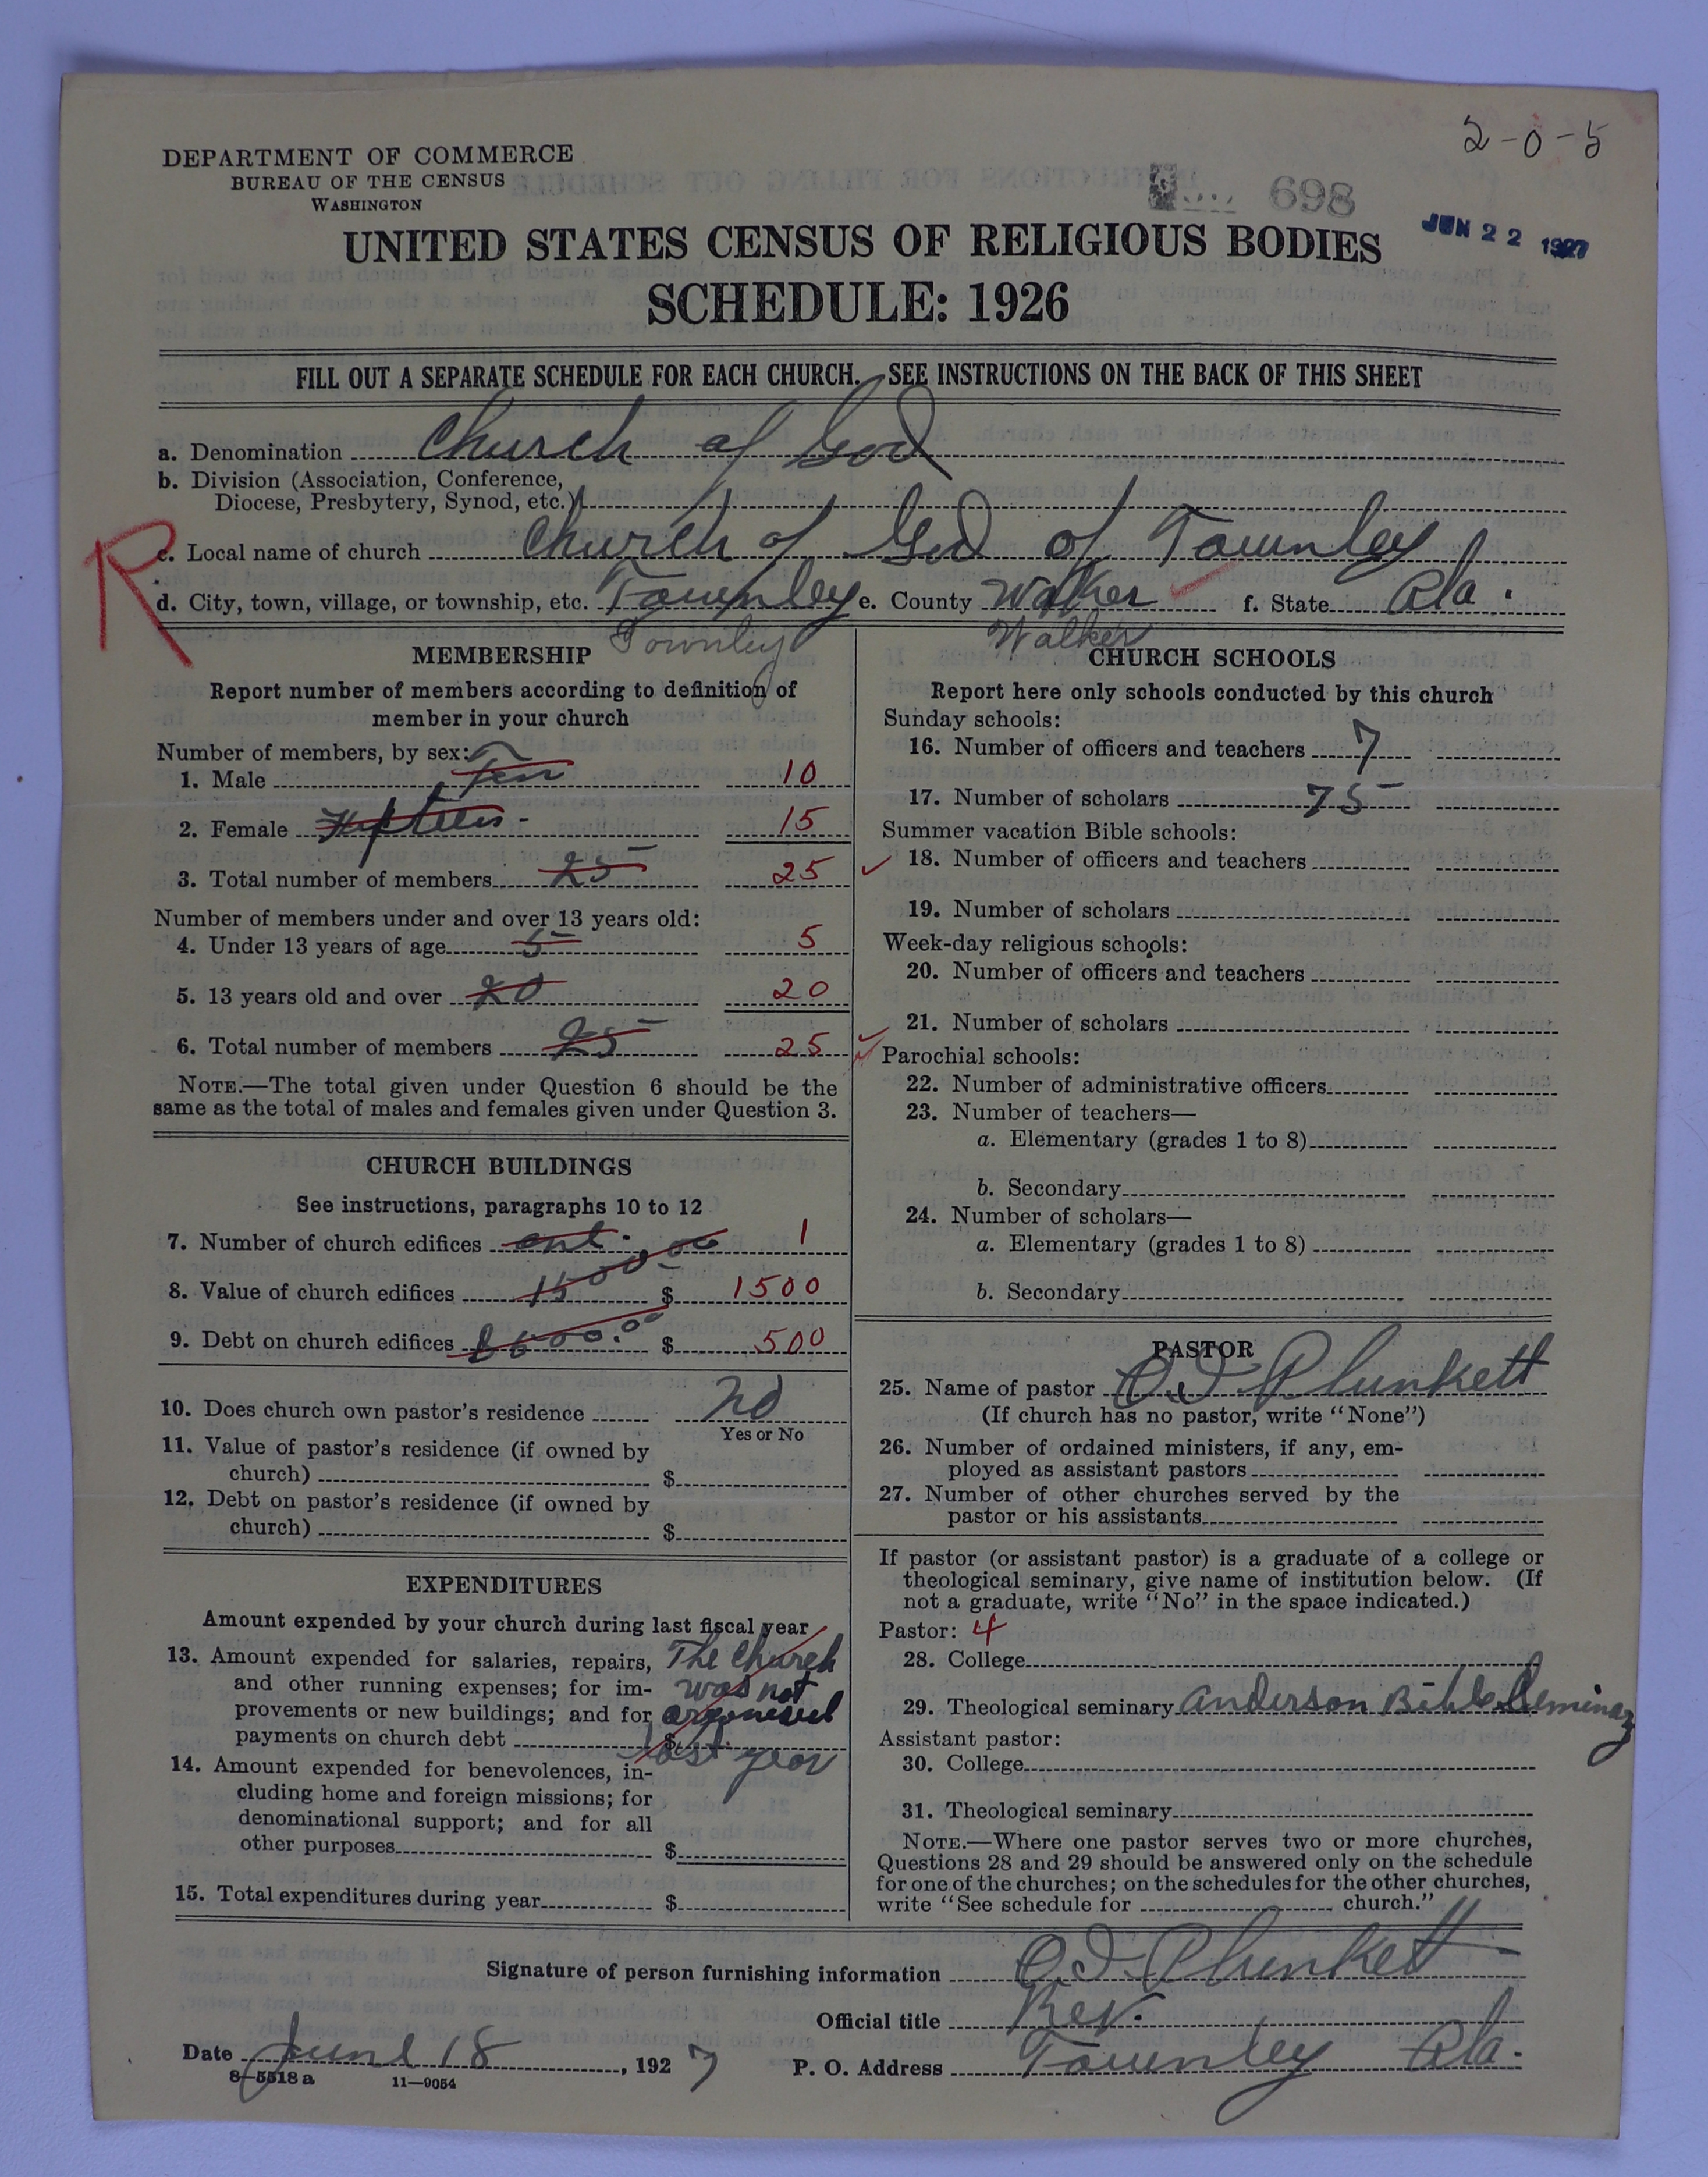 2-0-5
DEPARTMENT OF COMMERCE
BUREAU OF THE CENSUS
WASHINGTON
698
JUN 22 1927
UNITED STATES CENSUS OF RELIGIOUS BODIES
SCHEDULE: 1926
FILL OUT A SEPARATE SCHEDULE FOR EACH CHURCH. SEE INSTRUCTIONS ON THE BACK OF THIS SHEET
a. Denomination Church of God
b. Division (Association, Conference,
Diocese, Presbytery, Synod, etc.)
R
c. Local name of church Church of God of Townley
d. City, town, village, or township, etc. Townley e. County Walker f. State Ala.
Townley Walker
MEMBERSHIP
Report number of members according to definition of
member in your church
Number of members, by sex:
1. Male Ten 10
2. Female Fifteen- 15
3. Total number of members 25 25
Number of members under and over 13 years old:
4. Under 13 years of age 5 5
5. 13 years old and over 20 20
6. Total number of members 25 25
NOTE.—The total given under Question 6 should be the
same as the total of males and females given under Question 3.
CHURCH BUILDINGS
See instructions, paragraphs 10 to 12
7. Number of church edifices one. 1
8. Value of church edifices 1500.00 $ 1500
9. Debt on church edifices $ 500
10. Does church own pastor's residence No
Yes or No
11. Value of pastor's residence (if owned by
church) $
12. Debt on pastor's residence (if owned by
church) $
EXPENDITURES
Amount expended by your church during last fiscal year
13. Amount expended for salaries, repairs, The Church
and other running expenses; for im- was not
provements or new buildings; and for organised
payments on church debt $ last year
14. Amount expended for benevolences, in-
cluding home and foreign missions; for
denominational support; and for all
other purposes $
15. Total expenditures during year $
CHURCH SCHOOLS
Report here only schools conducted by this church
Sunday schools:
16. Number of officers and teachers 7
17. Number of scholars 75
Summer vacation Bible schools:
18. Number of officers and teachers
19. Number of scholars
Week-day religious schools:
20. Number of officers and teachers
21. Number of scholars
Parochial schools:
22. Number of administrative officers
23. Number of teachers—
a. Elementary (grades 1 to 8)
b. Secondary
24. Number of scholars—
a. Elementary (grades 1 to 8)
b. Secondary
PASTOR
25. Name of pastor O. I. Plunkett
(If church has no pastor, write "None")
26. Number of ordained ministers, if any, em-
ployed as assistant pastors
27. Number of other churches served by the
pastor or his assistants
If pastor (or assistant pastor) is a graduate of a college or
theological seminary, give name of institution below. (If
not a graduate, write "No" in the space indicated.)
Pastor: 4
28. College
29. Theological seminary Anderson Bible Seminary
Assistant pastor:
30. College
31. Theological seminary
NOTE.—Where one pastor serves two or more churches,
Questions 28 and 29 should be answered only on the schedule
for one of the churches; on the schedules for the other churches,
write "See schedule for church."
Signature of person furnishing information O. I. Plunkett
Official title Rev.
Date June 18, 1927 P. O. Address Townley Ala.
8—5518 a 11—9054